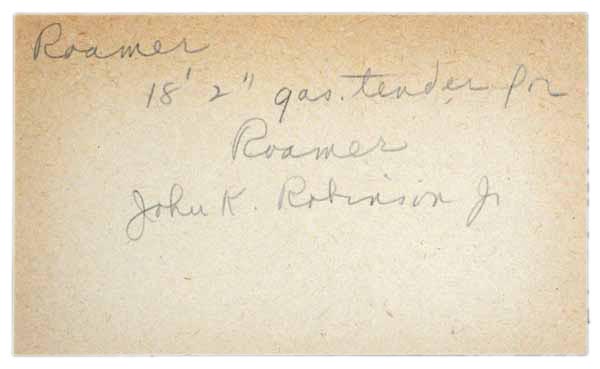 Roamer
18' 2" gas. tender for
Roamer
John K. Robinson Jr